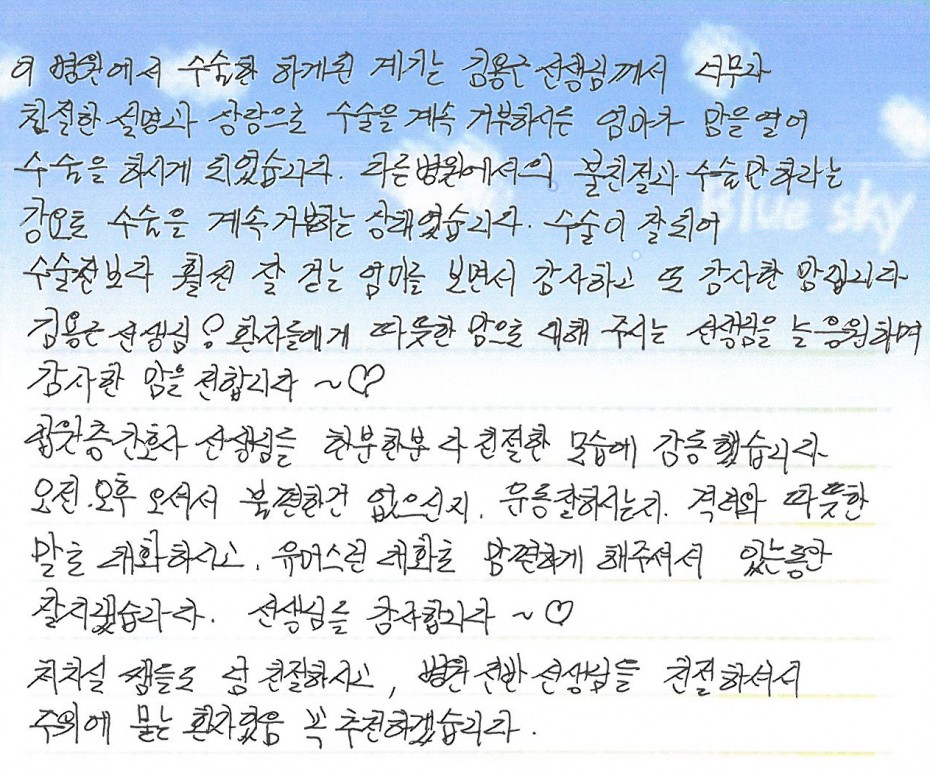 이 병원에서 수술한 하게된 계기는 김용근 선생님께서 너무나
친절한 설명과 상담으로 수술을 계속 거부하시는 엄마가 맘을 열어
수술을 하시게 되었습니다. 다른병원에서의 불친절과 수술만하라는
강요로 수술을 계속거부하는 상태였습니다. 수술이 잘되어
수술전보다 훨씬 잘 걷는 엄마를 보면서 감사하고 또 감사한 맘입니다
김용근 선생님! 환자들에게 따뜻한 맘으로 대해 주시는 선생님을 늘 응원하며
감사한 맘을 전합니다 ~♡
병동층간호사 선생님들 한분한분 다 친절한 모습에 감동했습니다
오전.오후 오셔서 불편한건 없으신지. 운동잘하시는지. 격려와 따뜻한
말로 대화하시고. 유머스런 대화로 맘편하게 해주셔서 있는동안
잘지냈습니다. 선생님들 감사합니다 ~♡
처치실 쌤들도 넘 친절하시고, 병원전반 선생님들 친절하셔서
주위에 묻는 환자있음 꼭 추천하겠습니다.
Blue sky